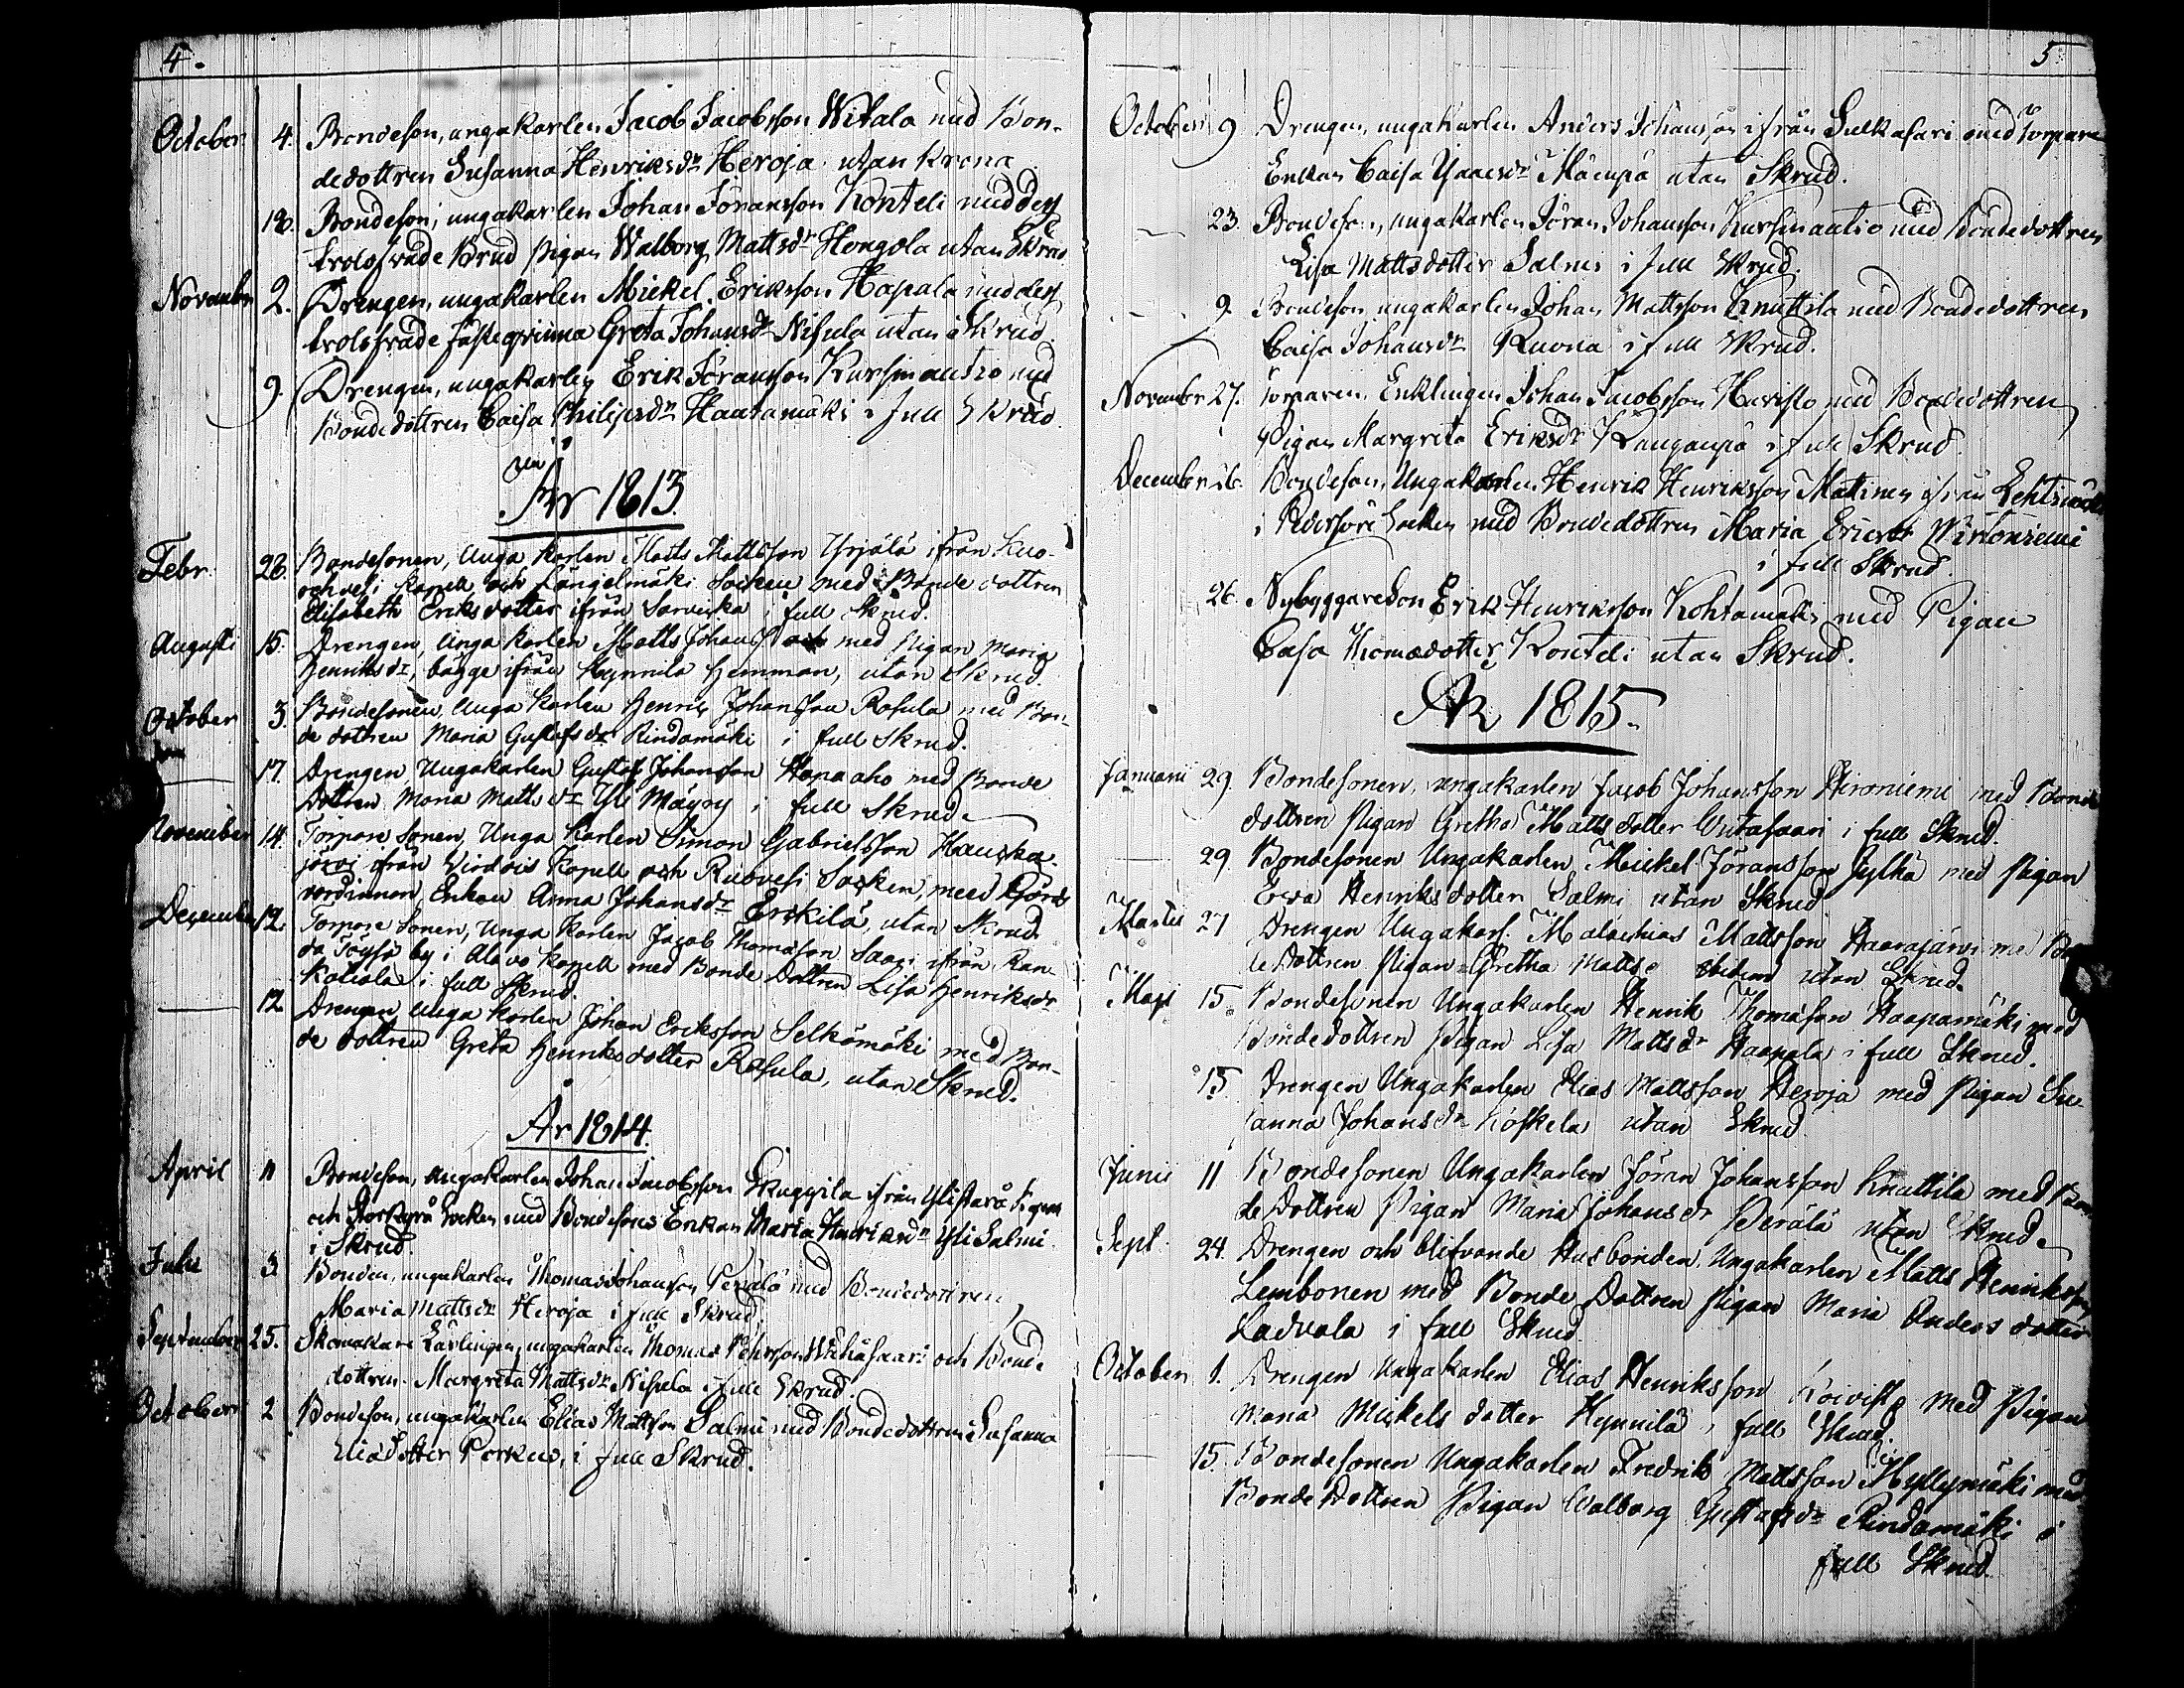 4.
October 4. Bondeson, ungakarlen Jacob Jacobsson Witala med Bon-
dedottren Susanna Henriksdr Heroja utan Krona
18. Bondeson, ungakarlen Johan Jöransson Konteli med dess
trolofvade Brud pigan Walborg Mattsdr Hongola utan Skrud
November 2. Drengen, ungakarlen Mickel Eriksson Hapala med dess
trolofvade fästeqvinna Greta Johansdr Nisula utan Skrud
9. Drengen, ungakarlen Erik Jöransson Kursinautio med
Bondedottren Caisa Philipsdr Haatamäki i full Skrud
År 1813.
Febr. 28. Bondesonen, Unga Karlen Matts Mattsson Yrjälä ifrån Kuo-
rehvesi Kapell och Längelmäki Socken med Bonde dottren
Elisabeth Eriksdotter ifrån Sarvicka i full Skrud.
Augusti 15. Drengen, Unga Karlen Matts Johansson med Pigan Maria
Henriksdr, bägge ifrån Hynnilä Hemman, utan Skrud.
October 3. Bondesonen, Unga Karlen Henric Johansson Rasula med Bon-
de dottren Maria Gustafsdr Rindamäki i full Skrud.
17. Drengen, Ungakarlen Gustaf Johansson Hapaaho med Bonde
Dottren Maria Mattsdr Yli Mäyry i full Skrud.
November 14. Torpare Sonen, Unga Karlen Simon Gabrielsson Hauska-
järvi ifrån Virdois Kapell och Ruovesi Socken, med
värdinnan, Enkan Anna Johansdr Erskilä, utan Skrud.
December 12. Torpare Sonen, Unga Karlen Jacob Thomasson Saari ifrån Ran-
da Töysä by i Alavo Kapell med Bonde Dottren Lisa Henriksdr
Katiala i full Skrud.
12 Drengen Unga Karlen Johan Eriksson Selkämäki med Bon-
de dottren Greta Henriksdotter Rasula, utan Skrud.
År 1814.
April 11 Bondeson, Ungakarlen Johan Jacobsson ifrån Ylistaro
och Storkyrå Socken med Bondesons Enkan Maria Henriksdr Yli Salmi
i Skrud.
Julii 3. Bonden, ungakarlen Thomas Johansson Perälä med Bondedottren
Maria Mattsdr Heroja i full Skrud.
September 25. Skomakare Lärlingen, ungakarlen Thomas Pehrsson Wihäsaari och Bonde
dottren Margreta Mattsdr Nisula i full Skrud.
October 2 Bondeson, ungakarlen Elias Mattsson Salmi med Bondedottren Susanna
Eliædotter Perkiö, i full Skrud.
5
October 9 Drengen, ungakarlen Anders Johansson ifrån Sulkasari med Torpare
Enkan Caisa Isacsdr Mäenpä utan Skrud.
23. Bondeson, ungakarlen Jöran Johansson Kursinautio med Bondedottren
Lisa Mattsdotter Salmi i full Skrud.
9. Bondeson ungakarlen Johan Mattsson Knuttila med Bondedottren
Caisa Johansdr Ruona i full Skrud.
November 27. Torparen, Enklingen Johan Jacobsson Havisto med Bondedottren
Pigan Margreta Eriksdr Kangaspä i full Skrud.
December 26. Bondeson, Ungakarlen Henrik Henriksson Mattinen ifrån Lehtimäki
i Pedersöre Socken med Bondedottren Maria Ericsdr Wirtoniemi
i full Skrud.
26. Nybyggareson Erik Henriksson Kohtamäki med Pigan
Casa Thomædotter Konteli utan Skrud.
År 1815.
Januari 29. Bondesonen, ungakarlen Jacob Johansson Hironiemi med Bonde
dottren Pigan Gretha Matts dotter Vuitasaari i full Skrud.
29. Bondesonen Ungakarlen Mickel Jöransson Jylhä med Pigan
Ewa Henriks dotter Salmi utan Skrud
Martii 27 Drengen Ungakarl. Malachias Mattsson Haarajärvi med Bon
de Dottren Pigan Gretha Mattsdr ibidem utan Skrud.
Maji 15. Bondesonen Ungakarlen Henrik Thomasson Haapamäki med
Bondedottren Pigan Lisa Mattsdr Haapala i full Skrud.
15. Drengen Ungakarlen Elias Mattsson Heroja med Pigan Su-
sanna Johansdr Koskela utan Skrud
Junii 11 Bondesonen Ungakarlen Jöran Johansson Knuttila med Bon
de Dottren Pigan Maria Johansdr Perälä utan Skrud.
Sept. 24. Drengen och blifvande Husbonden, Ungakarlen Matts Henriksson
Lembonen med Bonde Dottren Pigan Maria Anders dotter
Ladvala i full Skrud
October 1. Drengen Ungakarlen Elias Henriksson Koivisto med Pigan
Maria Mickels dotter Hynnilä i full Skrud.
15. Bondesonen Ungakarlen Fredrik Mattsson Myllymäki med
Bonde Dottren Pigan Walborg Gustafsdr Rindamäki i
full Skrud.